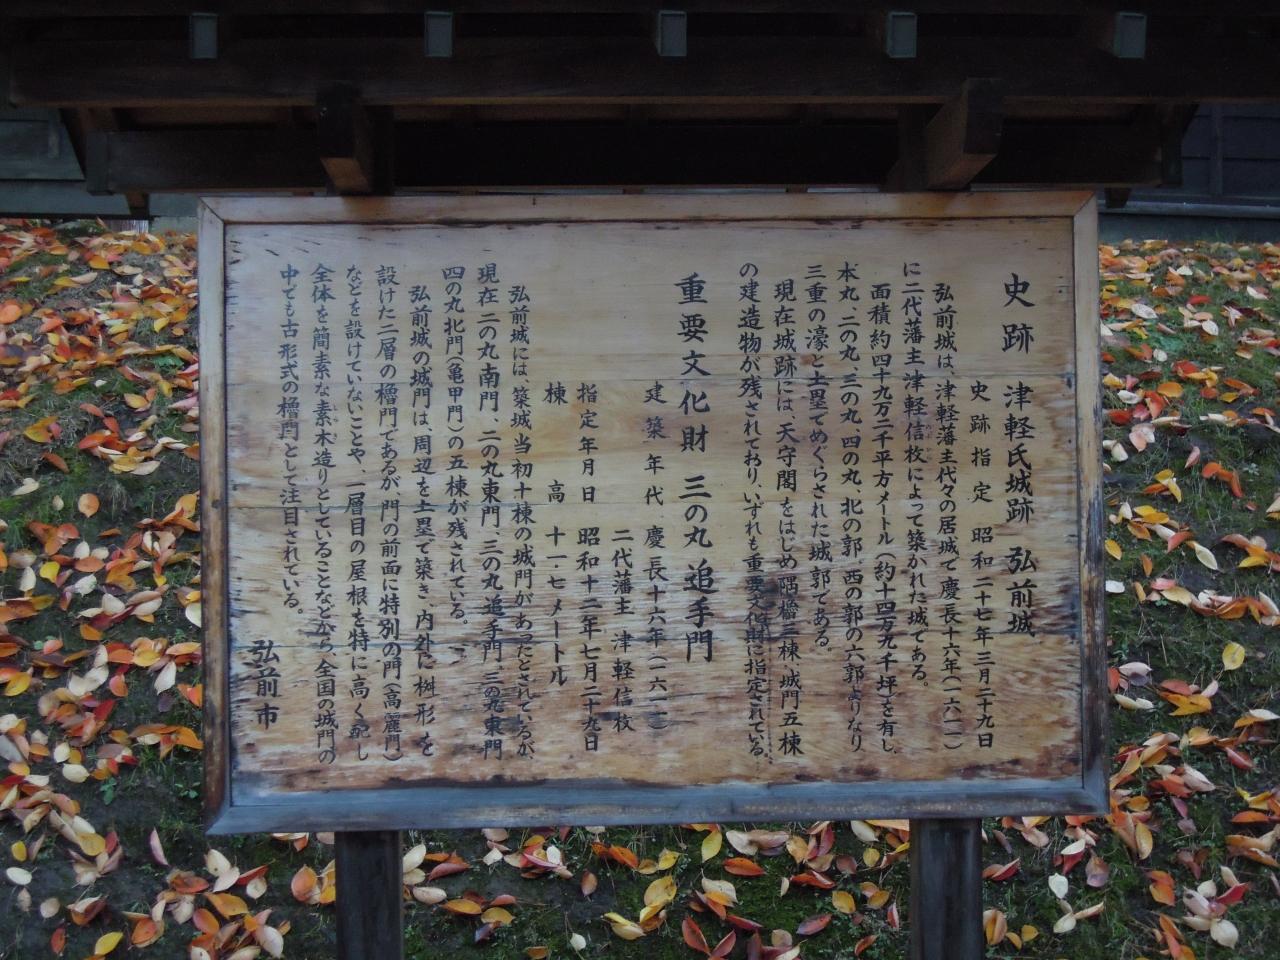 史跡 津軽氏城跡 弘前城
史跡指定 昭和二十七年三月二十九日
弘前城は、津軽藩主代々の居城で慶長十六年(一六一一)
に二代藩主津軽信枚によって築かれた城である。
面積約四十九万二千平方メートル(約十四万九千坪)を有し、
本丸、二の丸、三の丸、四の丸、北の郭、西の郭の六郭よりなり
三重の濠と土塁でめぐらされた城郭である。
現在城跡には、天守閣をはじめ隅櫓三棟、城門五棟
の建造物が残されており、いずれも重要文化財に指定されている。
重要文化財 三の丸 追手門
建築年代 慶長十六年(一六一一)
二代藩主 津軽信枚
指定年月日 昭和十二年七月二十九日
棟高 十一・七メートル
弘前城には、築城当初十棟の城門があったとされているが、
現在二の丸南門、二の丸東門、三の丸追手門、三の丸東門
四の丸北門(亀甲門)の五棟が残されている。
弘前城の城門は、周辺を土塁で築き、内外に桝形を
設けた二層の櫓門であるが、門の前面に特別の門(高麗門)
などを設けていないことや、一層目の屋根を特に高く配し
全体を簡素な素木造りとしていることなどから、全国の城門の
中でも古形式の櫓門として注目されている。
弘前市